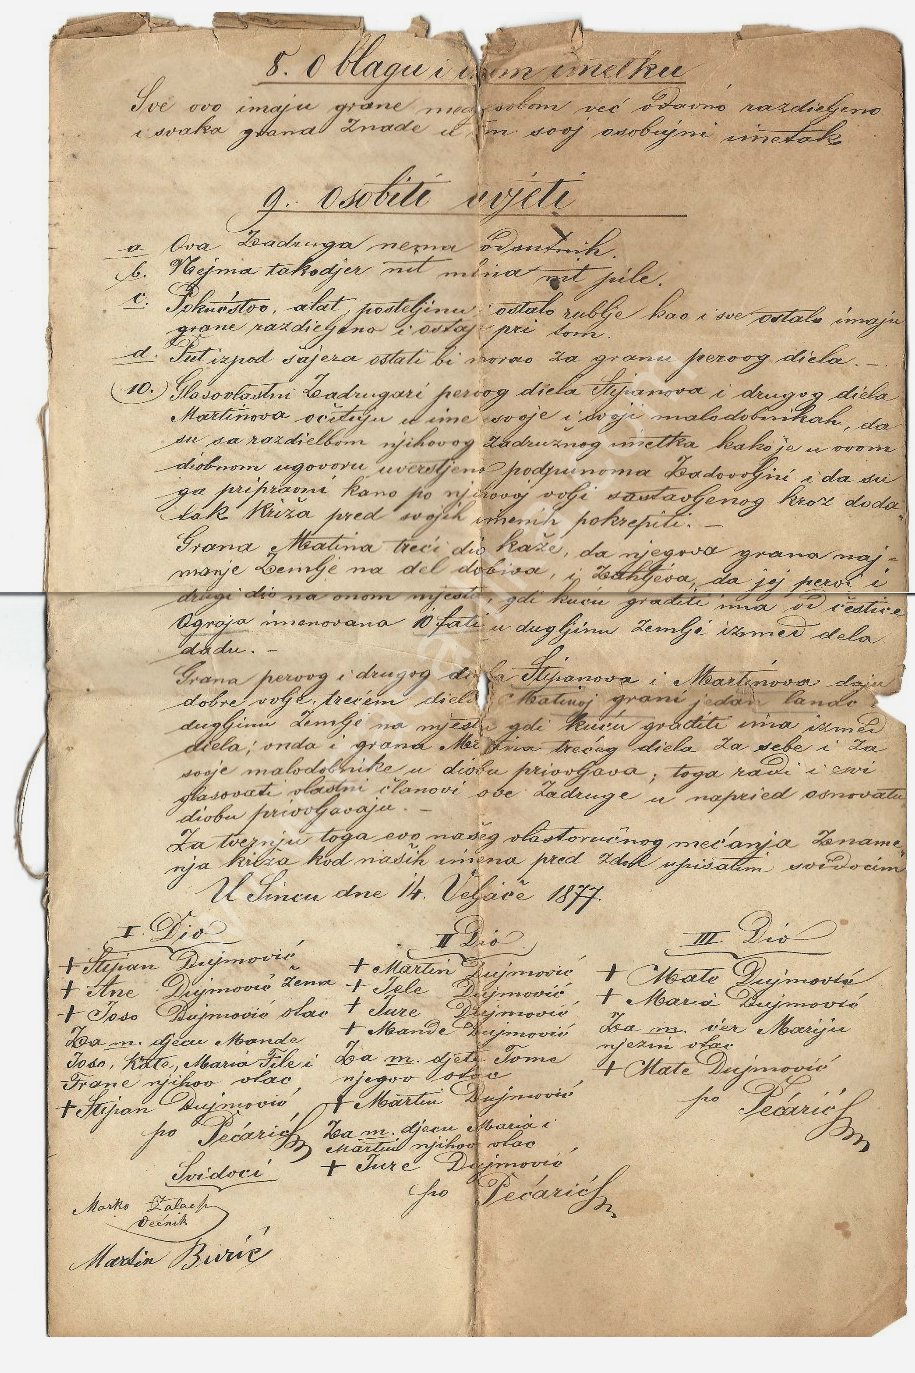 8. O blagu i inom imetku
Sve ovo imaju grane medj sobom već odavno razdieljeno
i svaka grana znade u tom svoj osobujni imetak
9. Osobiti uvjeti
a Ova Zadruga nema odsutnih.
b. Nejma takodjer nit mlina nit pile.
c. Pokućstvo, alat, posteljinu i ostalo rublje kao i sve ostalo imaju
grane razdieljeno i ostaje pri tom.
d. Put izpod sajera ostati bi morao za granu pervog diela. —
10. Glasovlastni Zadrugari pervog diela Stipanova i drugog diela
Martinova očituju u ime svoje i svoji malodobnikah, da
su sa razdielbom njihovog zadružnog imetka kako je u ovom
diobnom ugovoru uverštjeno podpunoma zadovoljni i da su
ga pripravni kano po njihovoj volji sastavljenog kroz doda-
tak križa pred svojih imenih pokrepiti. —
Grana Matina treći dio kaže, da njegova grana naj-
manje zemlje na del dobiva, i zahtjeva, da jej pervi i
drugi dio na onom mjestu gdi kuću graditi ima od čestice
Ograja imenovana 10 fati u dugljinu zemlje izmed dela
dadu. —
Grana pervog i drugog diela Stipanova i Martinova daju
dobre volje trećem dielu Matinoj grani jedan lanac
dugljinu zemlje na mjestu gdi kuću graditi ima izmed
diela; onda i grana Matina trećeg diela za sebe i za
svoje malodobnike u diobu privoljava; toga radi i svi
glasovati vlastni članovi ove Zadruge u napried osnovatu
diobu privoljavaju. —
Za tvernju toga evo našeg vlastoručnog mećanja zname-
nja križa kod naših imena pred zdol upisatim svidocim
U Sincu dne 14. Veljače 1877.
I. Dio
+ Stipan Dujmović
+ Ane Dujmović žena
+ Joso Dujmović otac
Za m. djecu Mande
Joso, Kate, Maria File i
Frane njihov otac
+ Stipan Dujmović
po Pećarić
II Dio
+ Martin Dujmović
+ Jele Dujmović
+ Jure Dujmović
+ Mande Dujmović
Za m. djete Tome
njegov otac
+ Martin Dujmović
Za m. djecu Maria i
Martin njihov otac
+ Jure Dujmović
po Pećarić
III. Dio
+ Mate Dujmović
+ Mara Dujmović
Za m. ćer Mariju
njezin otac
+ Mate Dujmović
po Pećarić
Svidoci
Marko
Većnik
Martin Burić